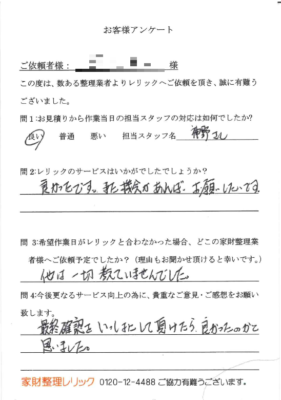 お客様アンケート
ご依頼者様： 様
この度は、数ある整理業者よりレリックへご依頼を頂き、誠に有難う
ございました。
問1:お見積りから作業当日の担当スタッフの対応は如何でしたか?
良い 普通 悪い 担当スタッフ名 神野さん
問2:レリックのサービスはいかがでしたでしょうか?
良かったです。また機会があれば、お願いしたいです
問3:希望作業日がレリックと合わなかった場合、どこの家財整理業
者様へご依頼予定でしたか?(理由もお聞かせ頂けると幸いです。)
他は一切考えていませんでした。
問4:今後更なるサービス向上の為に、貴重なご意見・ご感想をお願い
致します。
最終確認をいっしょにして頂けたら、良かったのかと
思いました。
家財整理レリック 0120-12-4488 ご協力有難うございます。